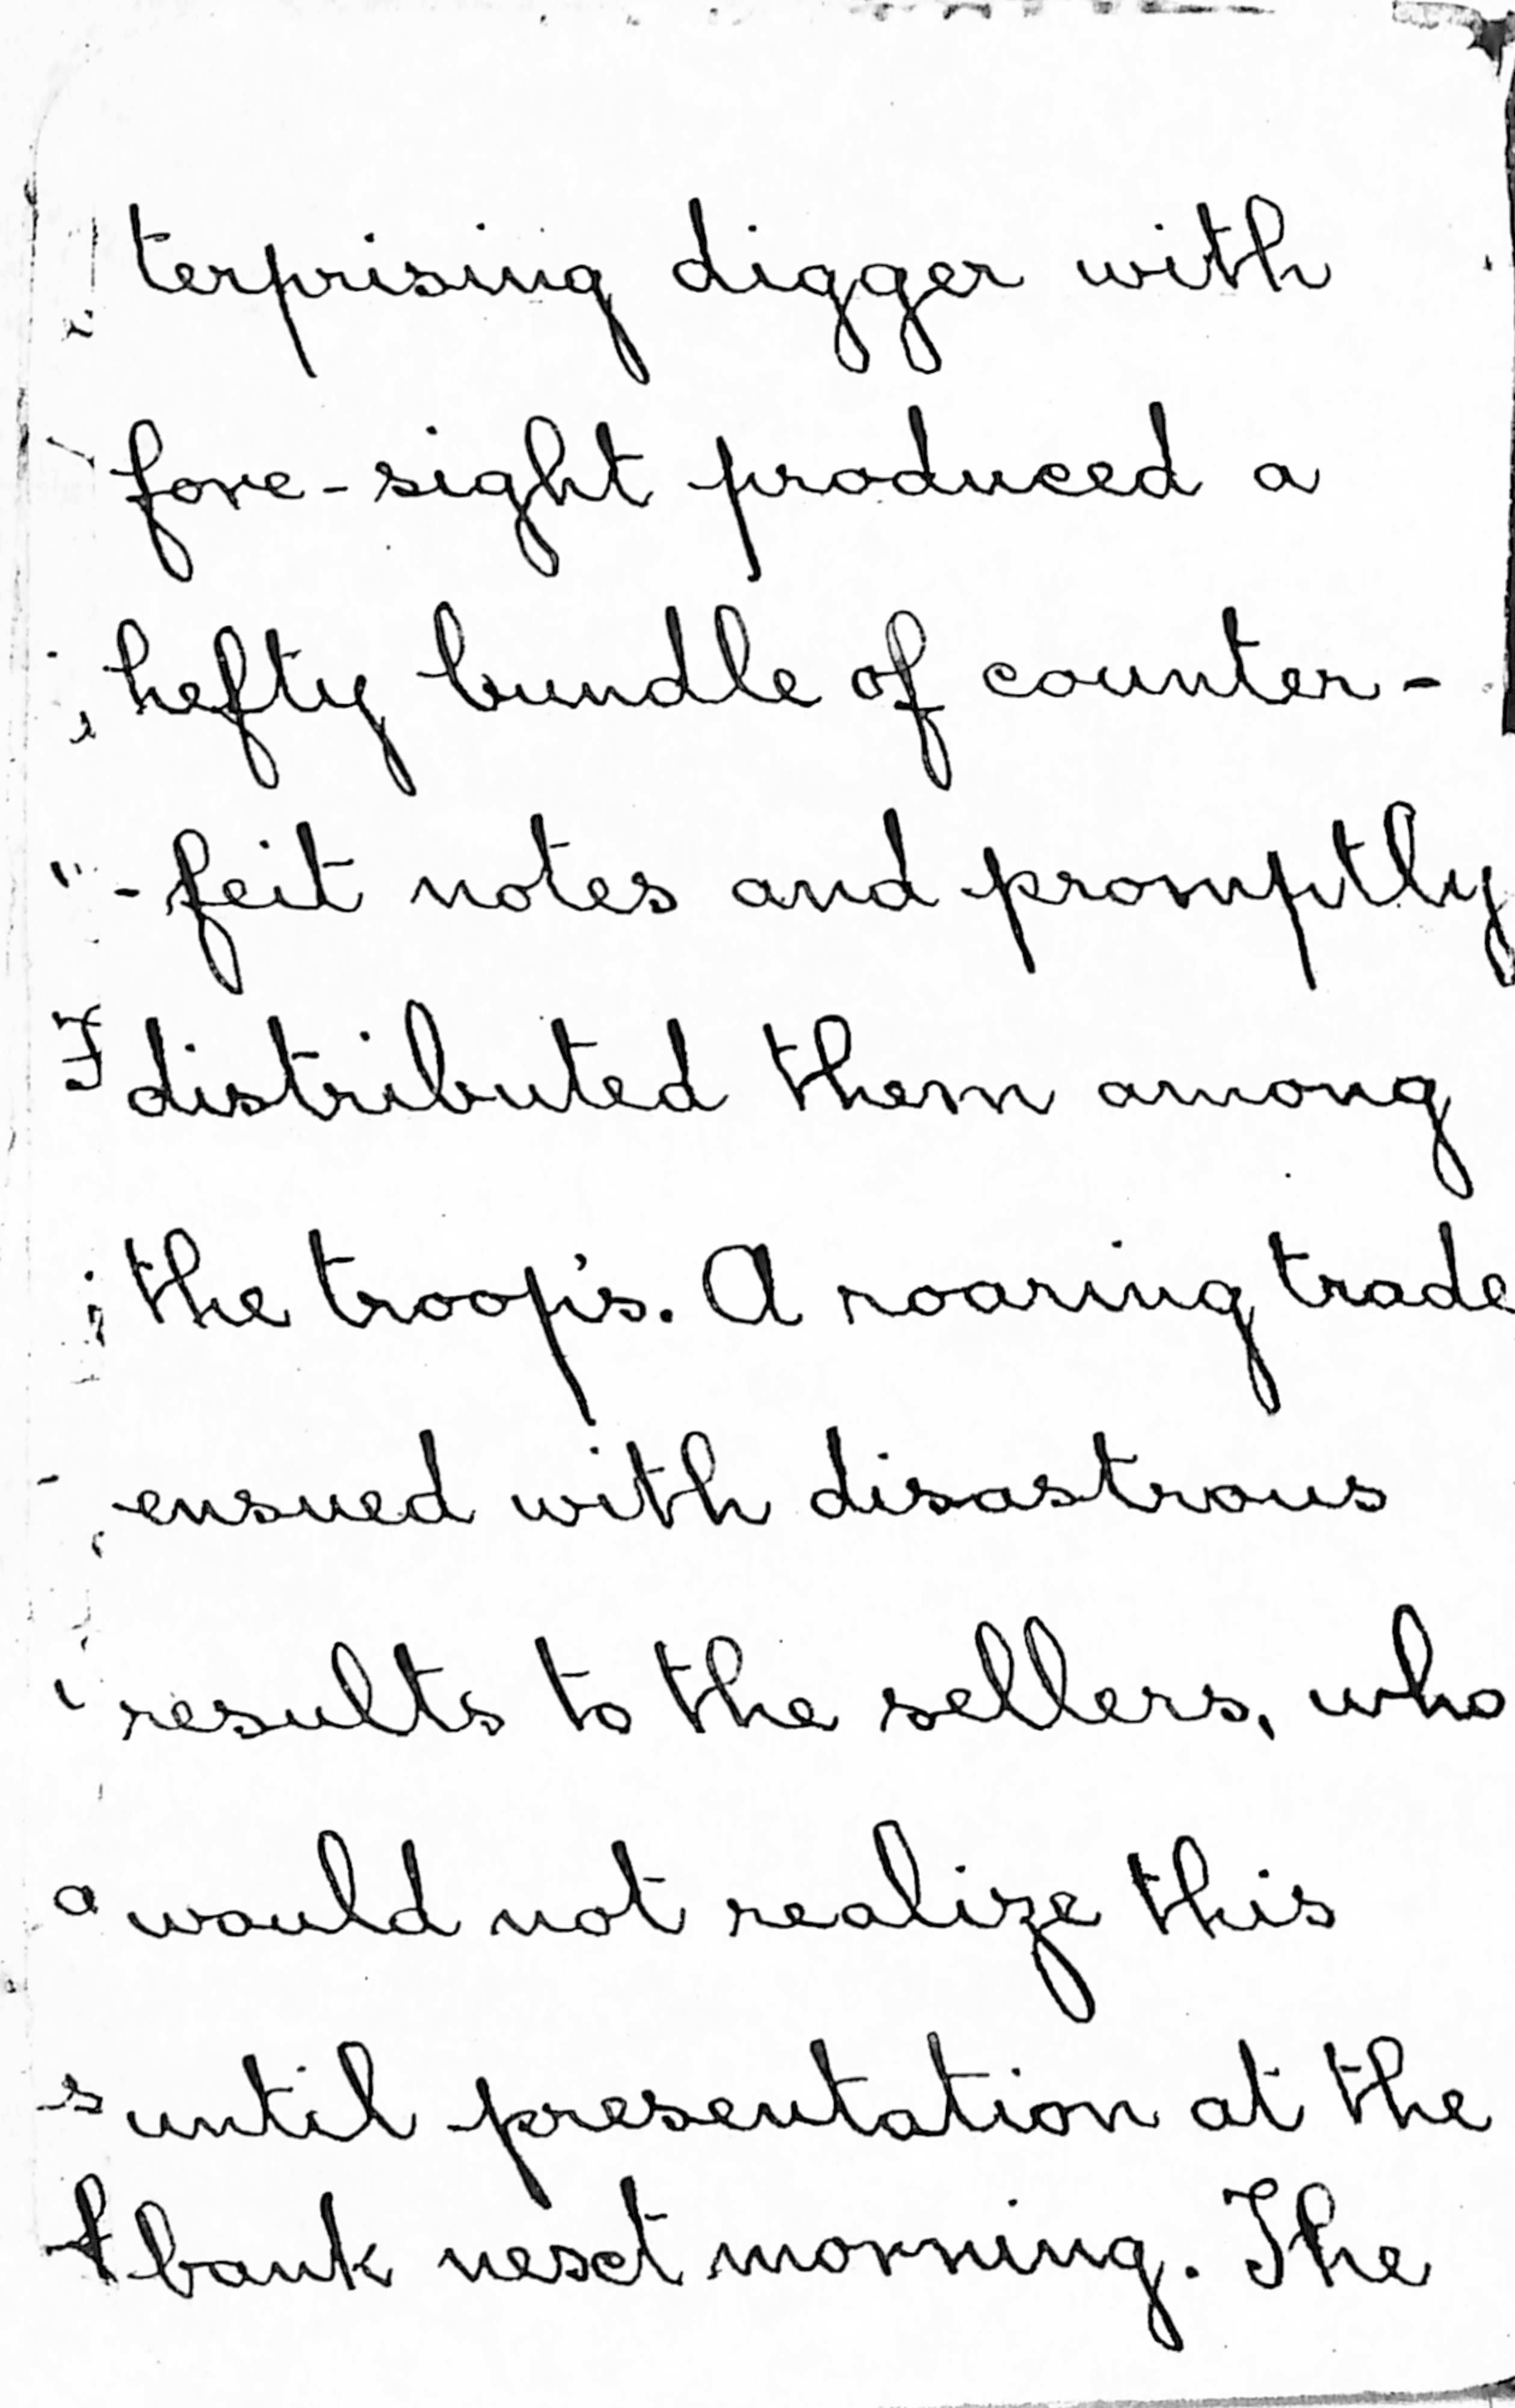 terprising digger with
fore-sight produced a
hefty bundle of counter-
-feit notes and promptly
distributed them among
the troop's. A roaring trade
ensued with disastrous
results to the sellers, who
would not realize this
until presentation at the
bank next morning. The